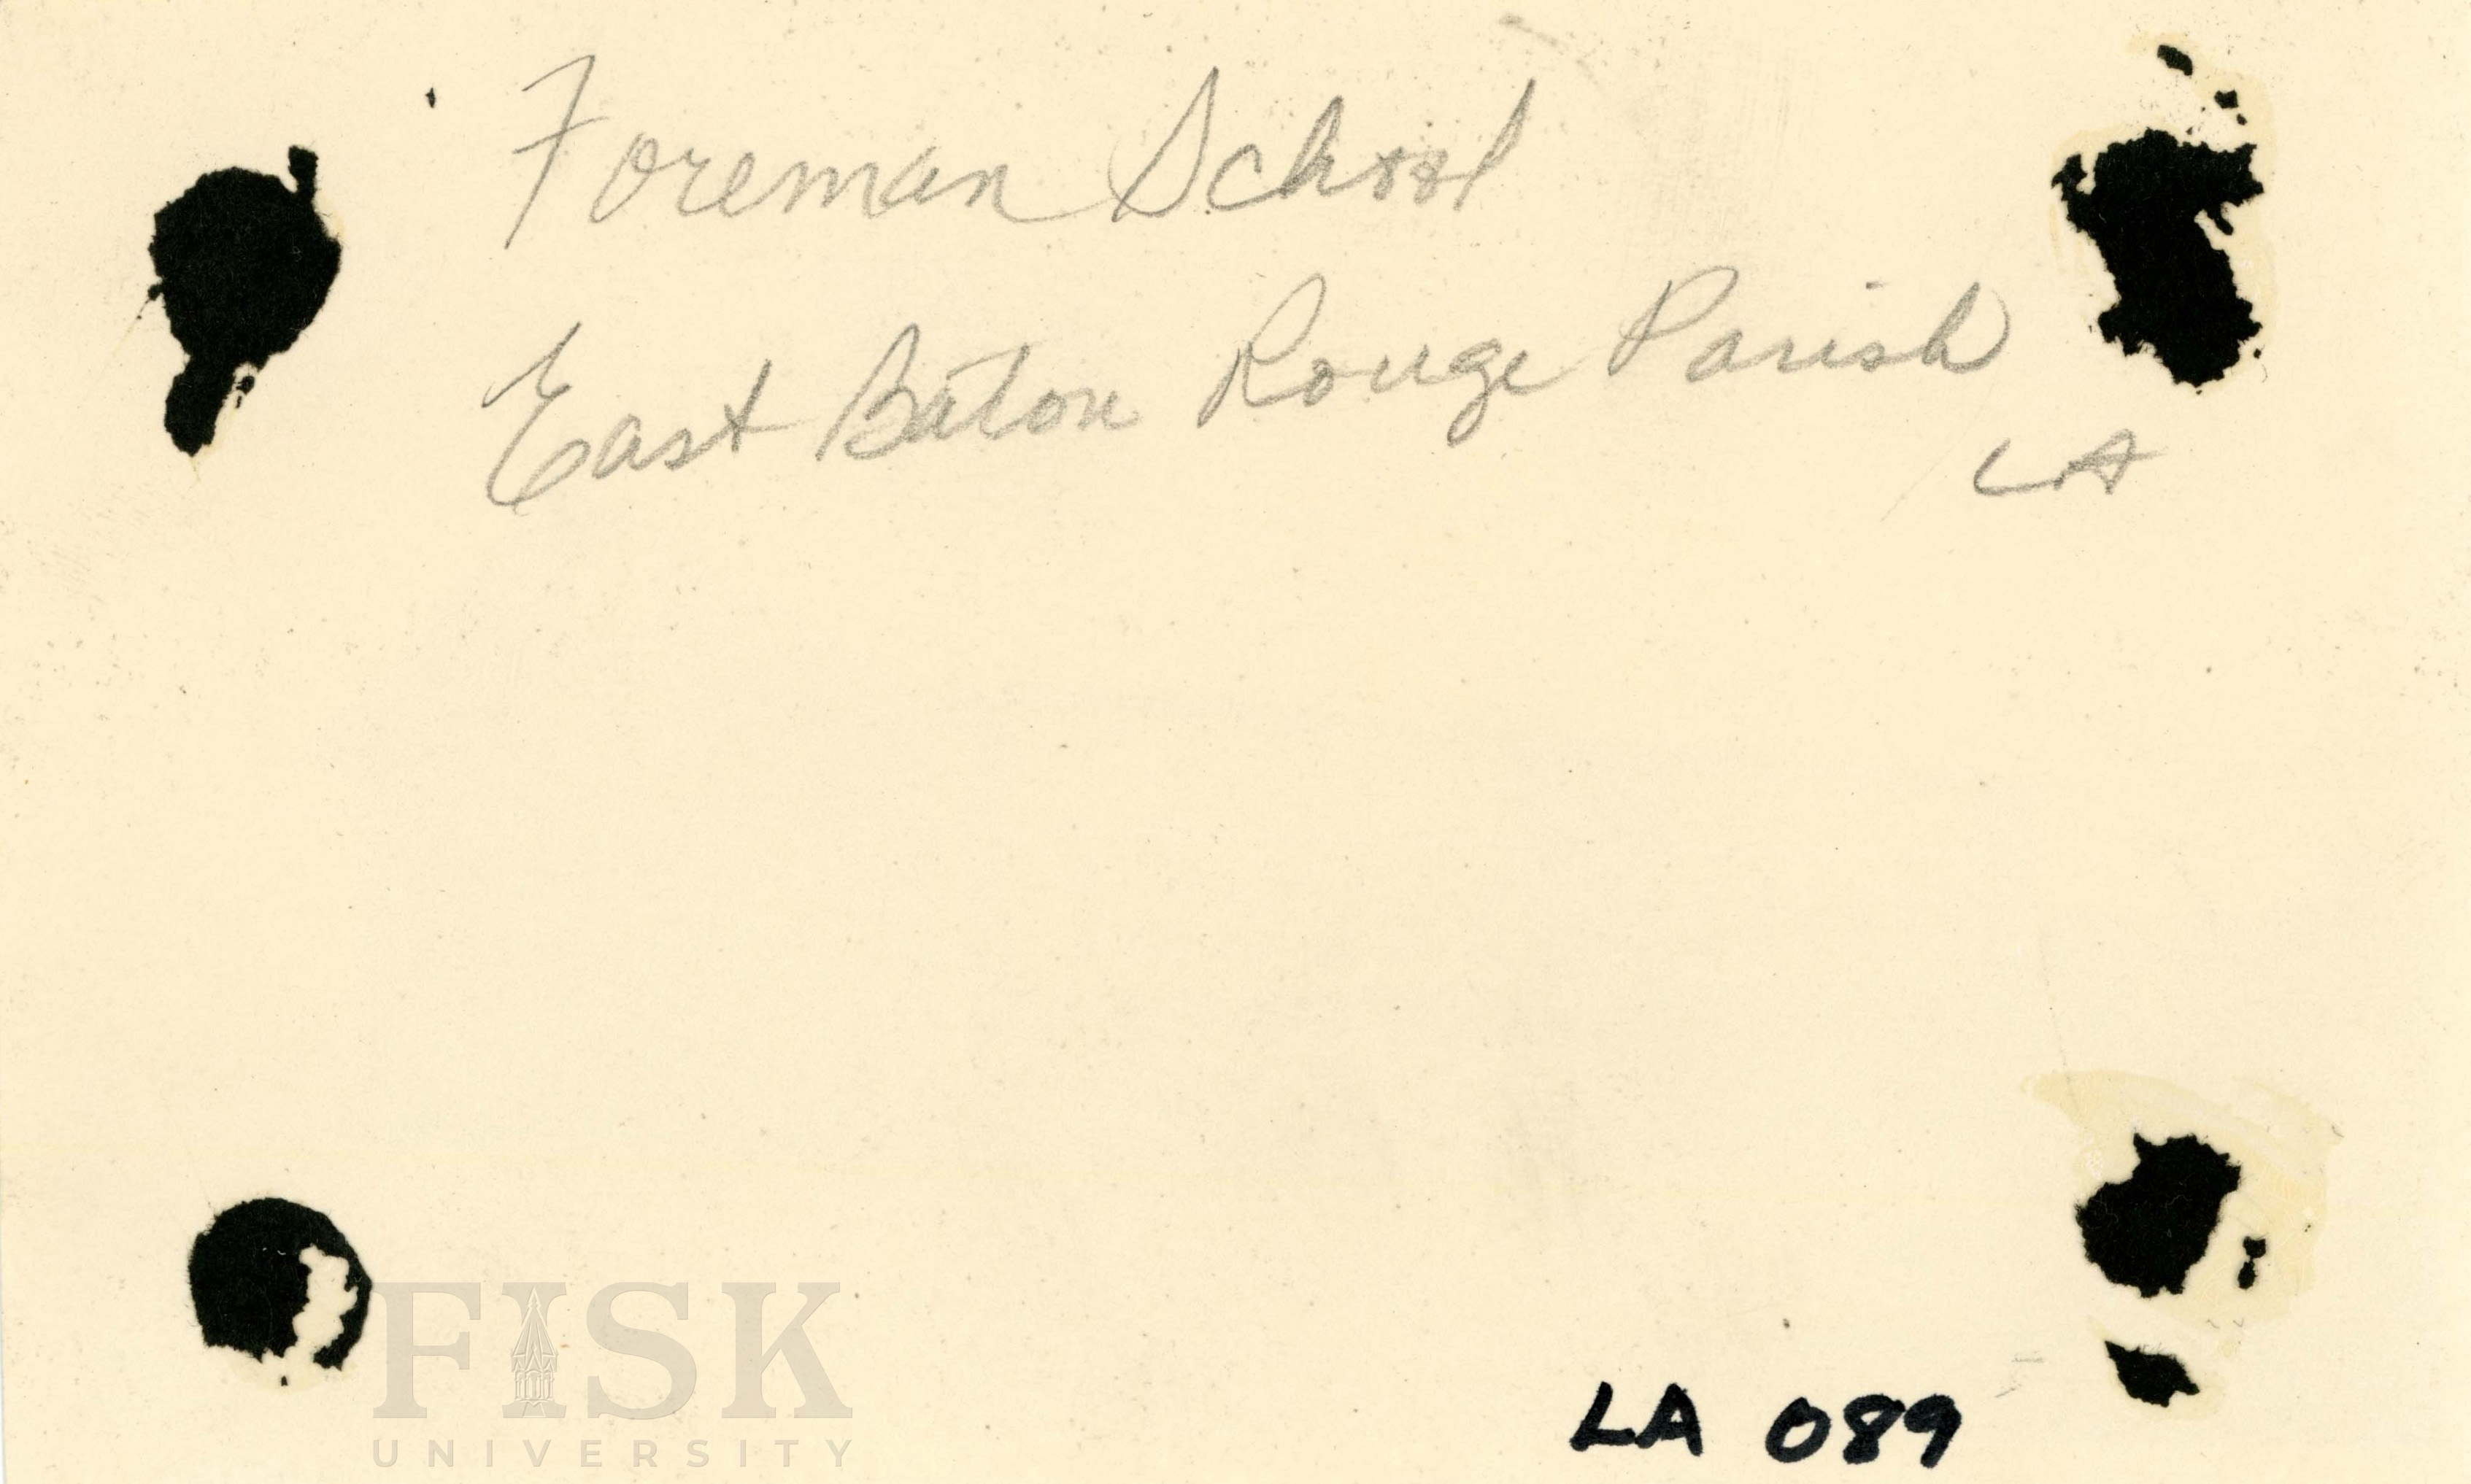 Foreman School
East Baton Rouge Parish
LA
FISK
UNIVERSITY
LA 089